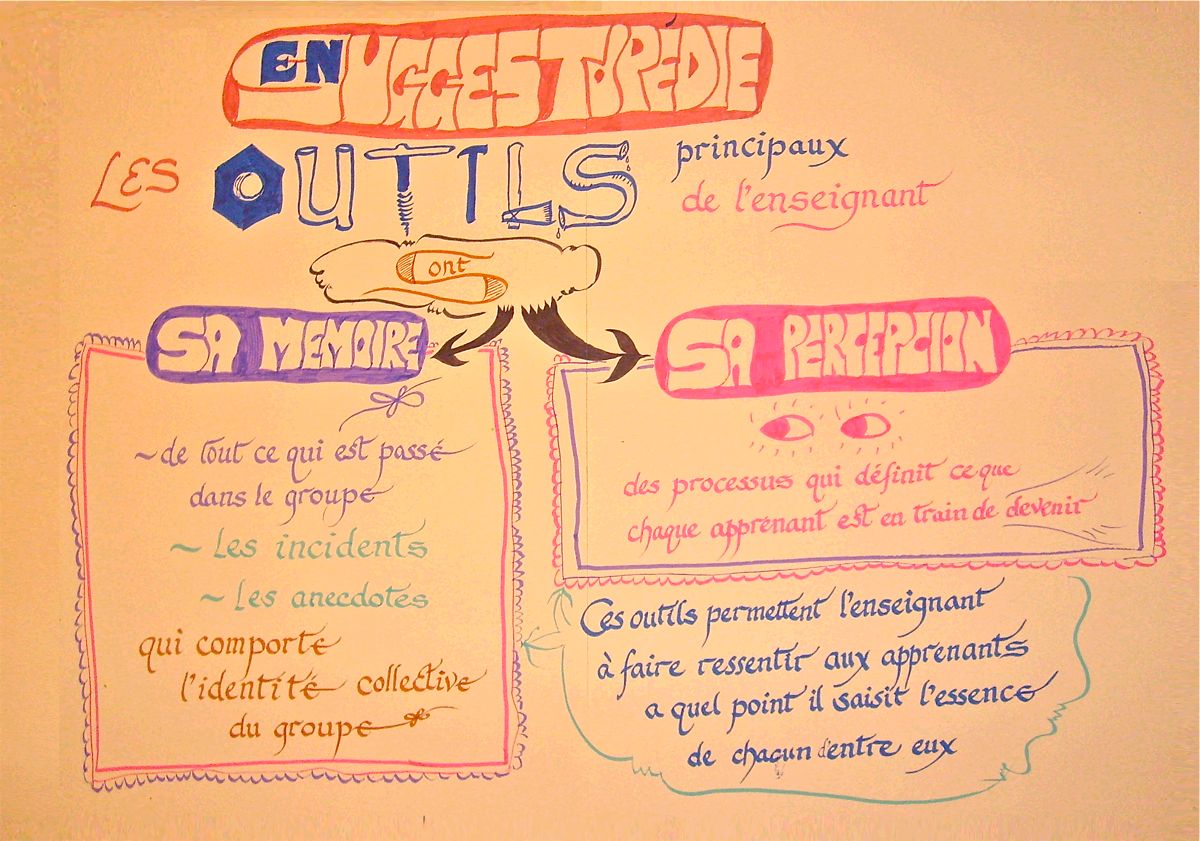 EN SUGGESTOPÉDIE
LES OUTILS principaux
de l'enseignant
ont
SA MEMOIRE
~ de tout ce qui est passé
dans le groupe
~ Les incidents
~ Les anecdotes
qui comporte
l'identité collective
du groupe
SA PERCEPCION
des processus qui définit ce que
chaque apprenant est en train de devenir
Ces outils permettent l'enseignant
à faire ressentir aux apprenants
a quel point il saisit l'essence
de chacun d'entre eux